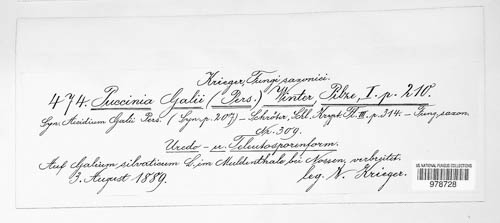 Krieger, Fungi saxonici.
474. Puccinia Galii (Pers.) Winter, Pilze, I. p. 210.
Syn. Aecidium Galii Pers. (Syn. p. 207) – Schröter, Schl. Krypt. Fl. III, p. 314. – Fung. saxon.
Nr. 309.
Uredo- u. Teleutosporenform.
Auf Galium silvaticum L. im Muldenthale bei Nossen, verbreitet.
3. August 1889. leg. W. Krieger.
US NATIONAL FUNGUS COLLECTIONS
978728